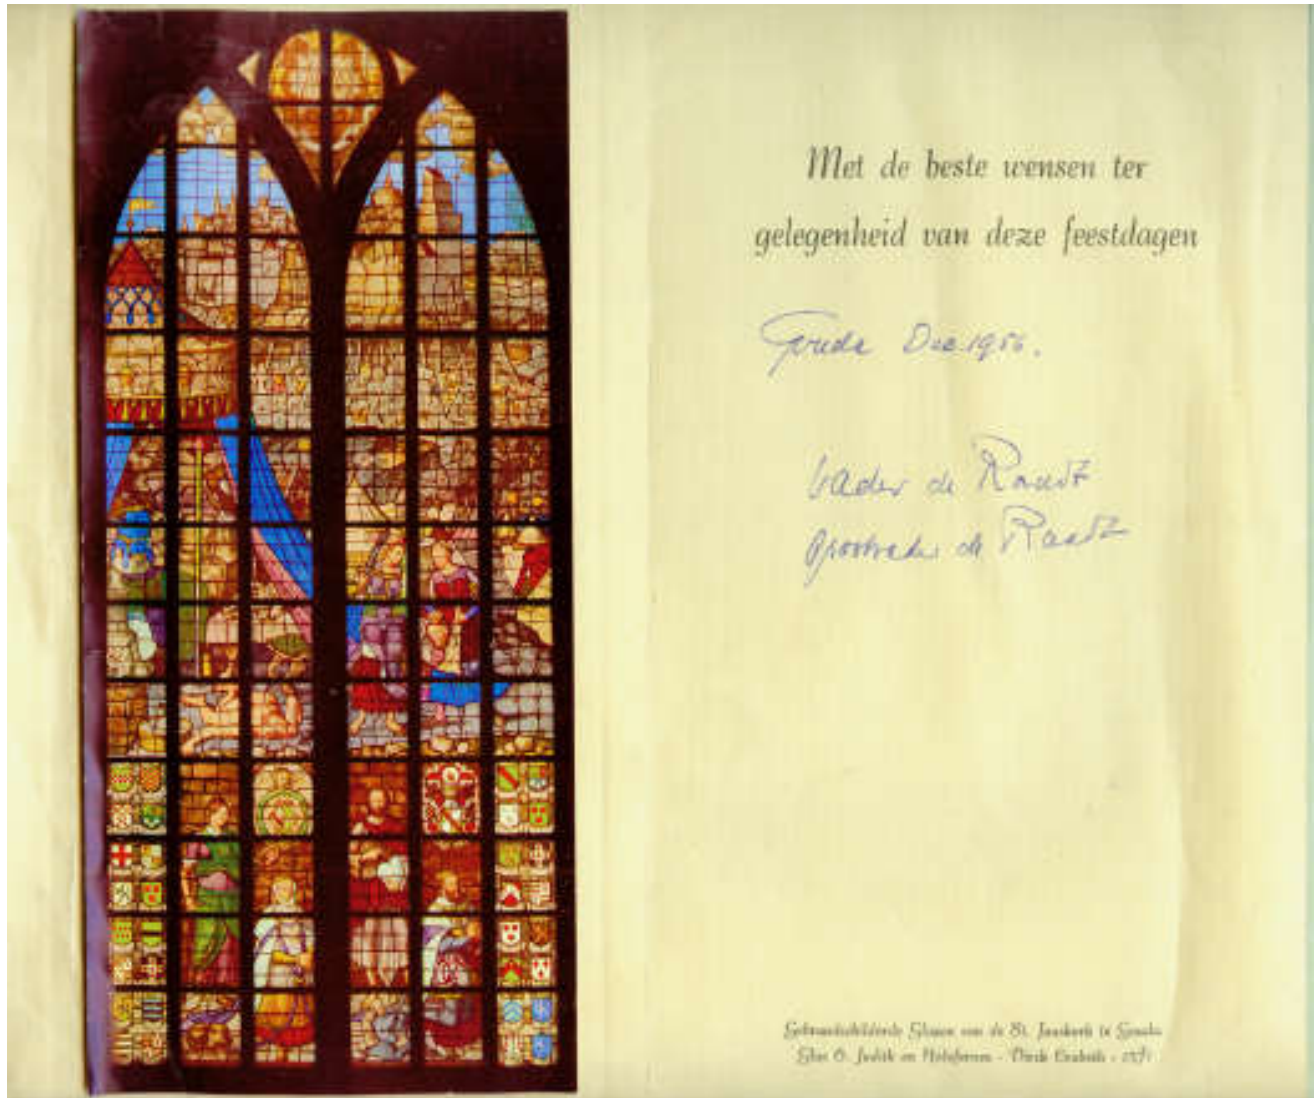 Met de beste wensen ter
gelegenheid van deze feestdagen
Gouda Dec. 1956.
Vader de Raadt
Grootvader de Raadt
Gebrandschilderde Glazen van de St. Janskerk te Gouda
Glas 6. Judith en Holofernes - Dirck Crabeth - 1571